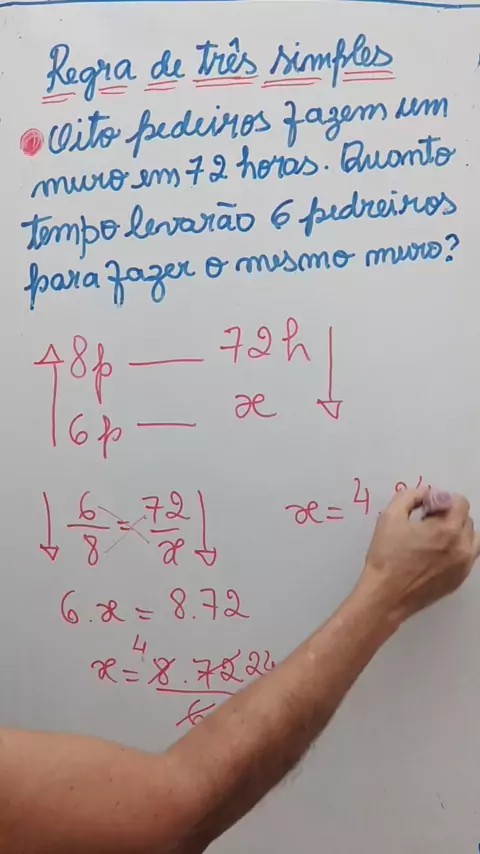 Regra de três simples
Oito pedeiros fazem um
muro em 72 horas. Quanto
tempo levarão 6 pedreiros
para fazer o mesmo muro?
8p — 72h
6p — x
6/8 = 72/x
6.x = 8.72
x = 4 8.72 24
6
x = 4.24